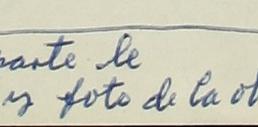 parte le
y foto de la ob